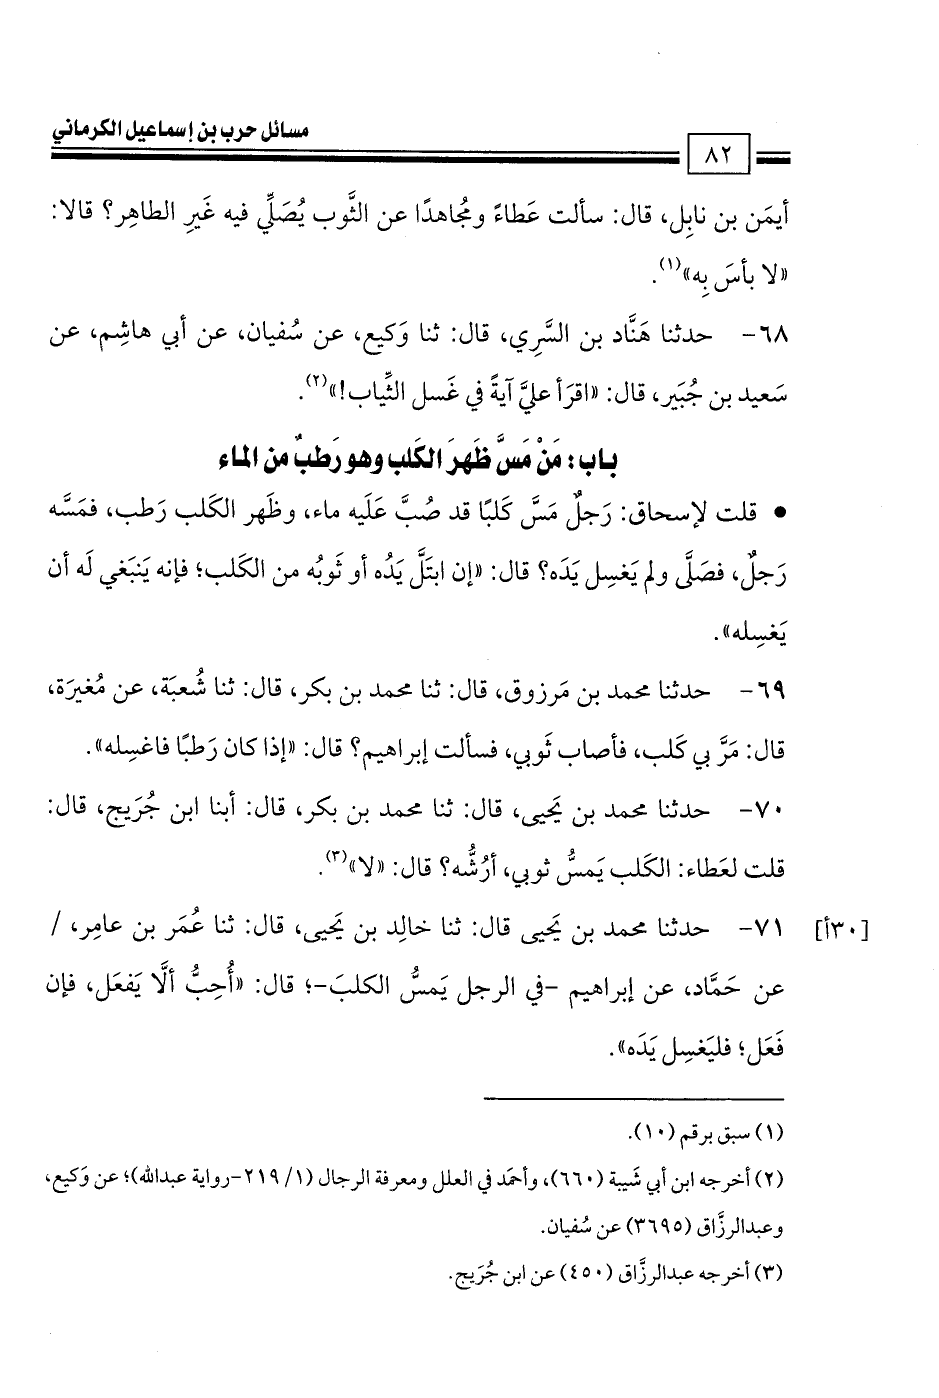 مسائل حرب بن إسماعيل الكرماني
٨٢
أيمَن بن نابِل، قال: سألت عَطاءً ومُجاهدًا عن الثَّوب يُصَلِّي فيه غَيرِ الطاهِر؟ قالا:
«لا بأسَ بِه»(١).
٦٨- حدثنا هَنَّاد بن السَّرِي، قال: ثنا وَكيع، عن سُفيان، عن أبي هاشِم، عن
سَعيد بن جُبَير، قال: «اقرَأ عليَّ آيةً في غَسل الثِّياب!»(٢).
باب: مَنْ مَسَّ ظَهرَ الكَلب وهو رَطبٌ من الماء
• قلت لإسحاق: رَجلٌ مَسَّ كَلبًا قد صُبَّ عَلَيه ماء، وظَهر الكَلب رَطب، فمَسَّه
رَجلٌ، فصَلَّى ولم يَغسِل يَدَه؟ قال: «إن ابتَلَّ يَدُه أو ثَوبُه من الكَلب؛ فإنه يَنبَغي لَه أن
يَغسِله».
٦٩- حدثنا محمد بن مَرزوق، قال: ثنا محمد بن بكر، قال: ثنا شُعبَة، عن مُغيرَة،
قال: مَرَّ بي كَلب، فأصاب ثَوبي، فسألت إبراهيم؟ قال: «إذا كان رَطبًا فاغسِله».
٧٠- حدثنا محمد بن يَحيى، قال: ثنا محمد بن بكر، قال: أبنا ابن جُرَيج، قال:
قلت لعَطاء: الكَلب يَمسُّ ثوبي، أرُشُّه؟ قال: «لا»(٣).
٧١- حدثنا محمد بن يَحيى قال: ثنا خالِد بن يَحيى، قال: ثنا عُمَر بن عامِر، / [٣٠أ]
عن حَمَّاد، عن إبراهيم -في الرجل يَمسُّ الكلبَ-؛ قال: «أُحِبُّ ألَّا يَفعَل، فإن
فَعَل؛ فليَغسِل يَدَه».
(١) سبق برقم (١٠).
(٢) أخرجه ابن أبي شَيبة (٦٦٠)، وأحمَد في العلل ومعرفة الرجال (١/ ٢١٩-رواية عبدالله)؛ عن وَكيع،
وعبدالرزَّاق (٣٦٩٥) عن سُفيان.
(٣) أخرجه عبدالرزَّاق (٤٥٠) عن ابن جُرَيج.